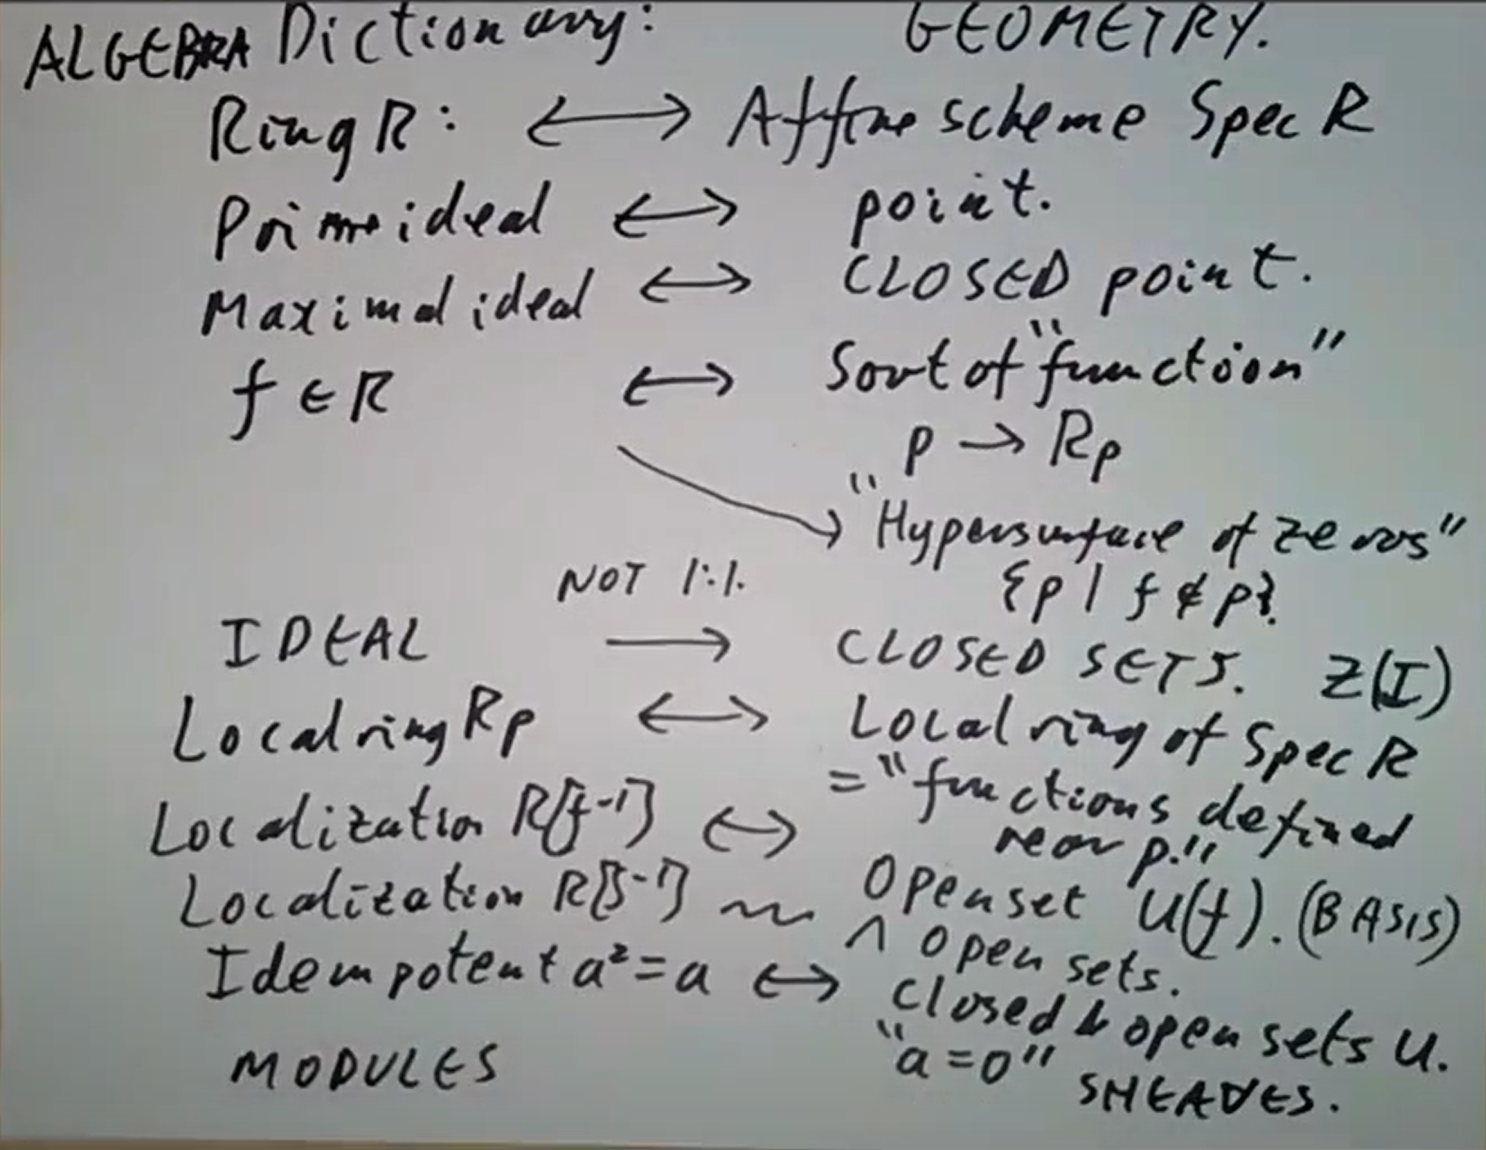 ALGEBRA Dictionary: GEOMETRY.
Ring R: ⟷ Affine scheme Spec R
Prime ideal ⟷ point.
Maximal ideal ⟷ CLOSED point.
f ∈ R ⟷ Sort of "function"
p → Rp
"Hypersurface of zeros"
{p | f ∉ p}
NOT 1:1.
IDEAL → CLOSED SETS. Z(I)
Local ring Rp ⟷ Local ring of Spec R
= "functions defined
near p."
Localization R[f⁻¹] ⟷ Open set U(f). (BASIS)
Localization R[S⁻¹] ~ ∩ open sets.
Idempotent a² = a ⟷ closed & open sets U.
"a = 0"
MODULES SHEAVES.